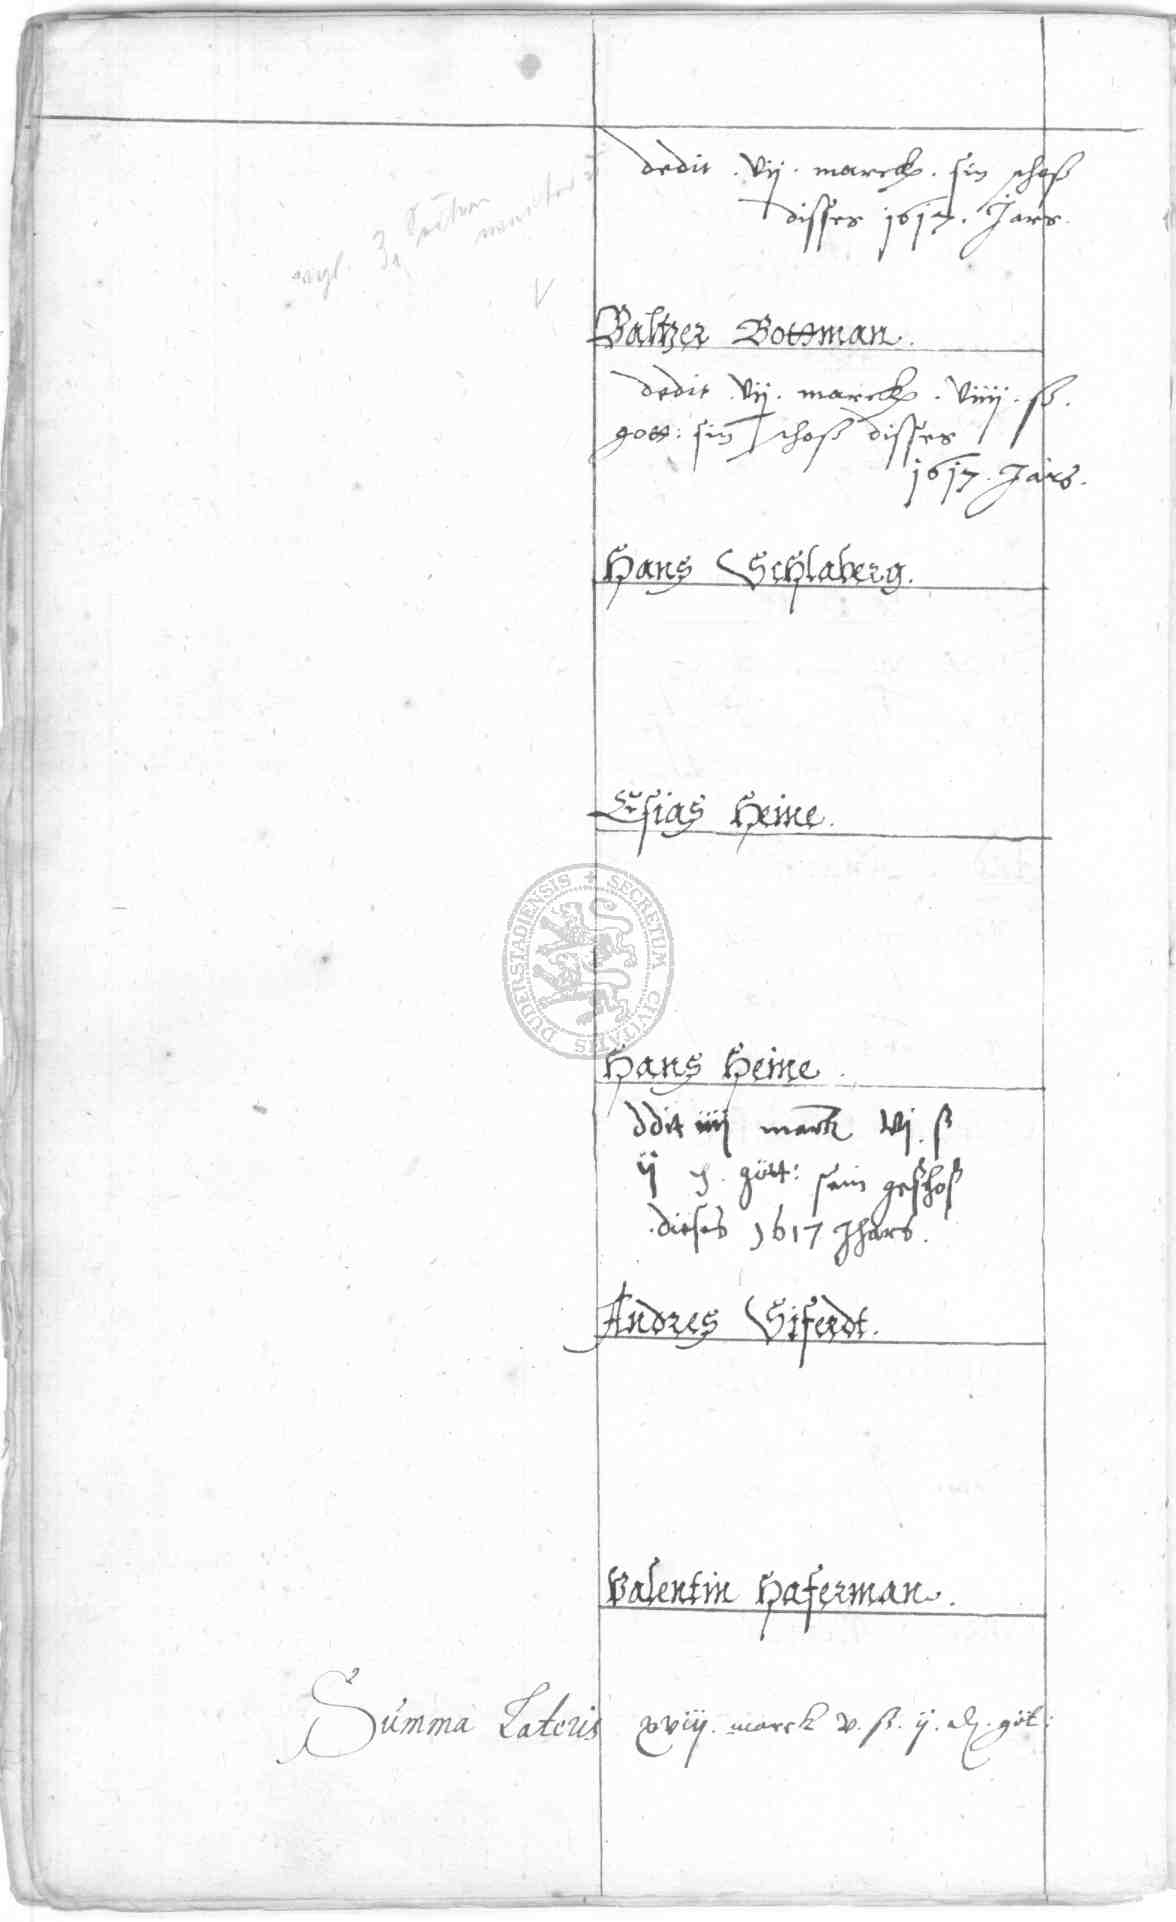 dedit . vij . marck . sin schoß
disses 1617 . Jars .
Baltzer Bottman .
dedit . vij . marck . viiij . ß .
gott : sin schoß disses
1617 . Jars .
Hans Schlaberg .
Esias Heine .
SECRETUM CIVITATIS DUDERSTADIENSIS
Hans Heine .
ddit iiij marck vj . ß
ij . gött : sein geschoß
dieses 1617 Jhars .
Andres Siferdt .
Valentin Haferman .
Summa Lateris xviij . marck v . ß . ij . göt :